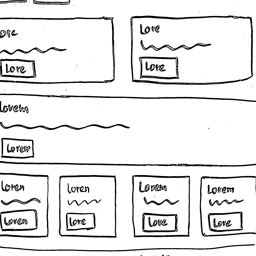 Love
Love
Love
Love
Lorem
Lorem
Loren Loren Lorem Lorem
Loren Lore Love Love